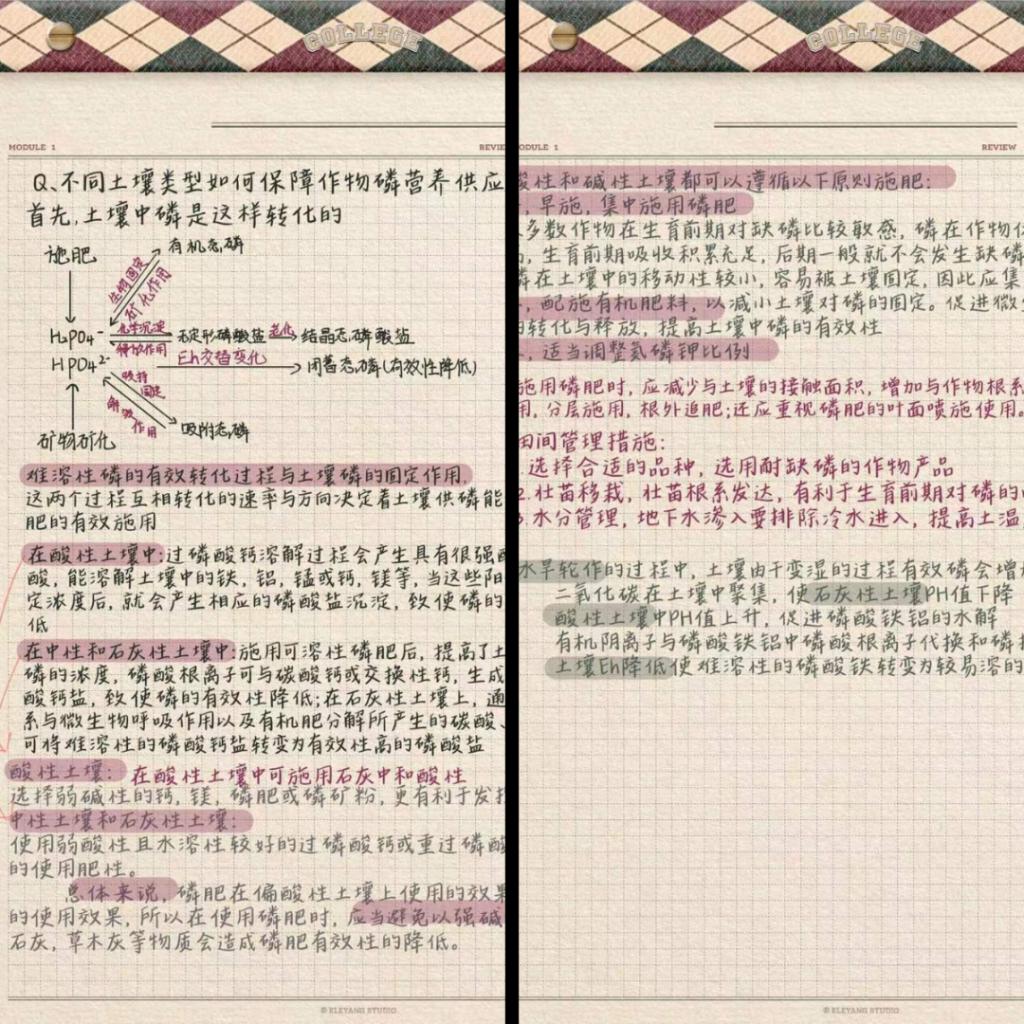 COLLEGE
MODULE 1
REVIE
Q、不同土壤类型如何保障作物磷营养供应
首先,土壤中磷是这样转化的
施肥
有机态磷
生物固定
矿化作用
H₂PO₄⁻
化学沉淀
无定形磷酸盐 老化 结晶态磷酸盐
释放作用
HPO₄²⁻
Eh交替变化
闭蓄态磷(有效性降低)
吸持
固定
解吸
作用
吸附态磷
矿物矿化
难溶性磷的有效转化过程与土壤磷的固定作用,
这两个过程互相转化的速率与方向决定着土壤供磷能
肥的有效施用
在酸性土壤中:过磷酸钙溶解过程会产生具有很强酸
酸,能溶解土壤中的铁,铝,锰或钙,镁等,当这些阳
定浓度后,就会产生相应的磷酸盐沉淀,致使磷的
低
在中性和石灰性土壤中:施用可溶性磷肥后,提高了土
磷的浓度,磷酸根离子可与碳酸钙或交换性钙,生成
酸钙盐,致使磷的有效性降低;在石灰性土壤上,通
系与微生物呼吸作用以及有机肥分解所产生的碳酸、
可将难溶性的磷酸钙盐转变为有效性高的磷酸盐
酸性土壤: 在酸性土壤中可施用石灰中和酸性
选择弱碱性的钙,镁,磷肥或磷矿粉,更有利于发挥
中性土壤和石灰性土壤:
使用弱酸性且水溶性较好的过磷酸钙或重过磷酸
的使用肥性。
总体来说,磷肥在偏酸性土壤上使用的效果
的使用效果,所以在使用磷肥时,应当避免以强碱
石灰,草木灰等物质会造成磷肥有效性的降低。
© ELEYANG STUDIO
COLLEGE
ODULE 1
REVIEW
酸性和碱性土壤都可以遵循以下原则施肥:
,早施,集中施用磷肥
多数作物在生育前期对缺磷比较敏感,磷在作物体
,生育前期吸收积累充足,后期一般就不会发生缺磷
磷在土壤中的移动性较小,容易被土壤固定,因此应集
,配施有机肥料,以减小土壤对磷的固定。促进微
的转化与释放,提高土壤中磷的有效性
,适当调整氮磷钾比例
施用磷肥时,应减少与土壤的接触面积,增加与作物根系
用,分层施用,根外追肥;还应重视磷肥的叶面喷施使用。
田间管理措施:
.选择合适的品种,选用耐缺磷的作物产品
2.壮苗移栽,壮苗根系发达,有利于生育前期对磷的
3.水分管理,地下水渗入要排除冷水进入,提高土温
水旱轮作的过程中,土壤由干变湿的过程有效磷会增加
二氧化碳在土壤中聚集,使石灰性土壤PH值下降
酸性土壤中PH值上升,促进磷酸铁铝的水解
有机阴离子与磷酸铁铝中磷酸根离子代换和磷
土壤Eh降低使难溶性的磷酸铁转变为较易溶的
© ELEYANG STUDIO